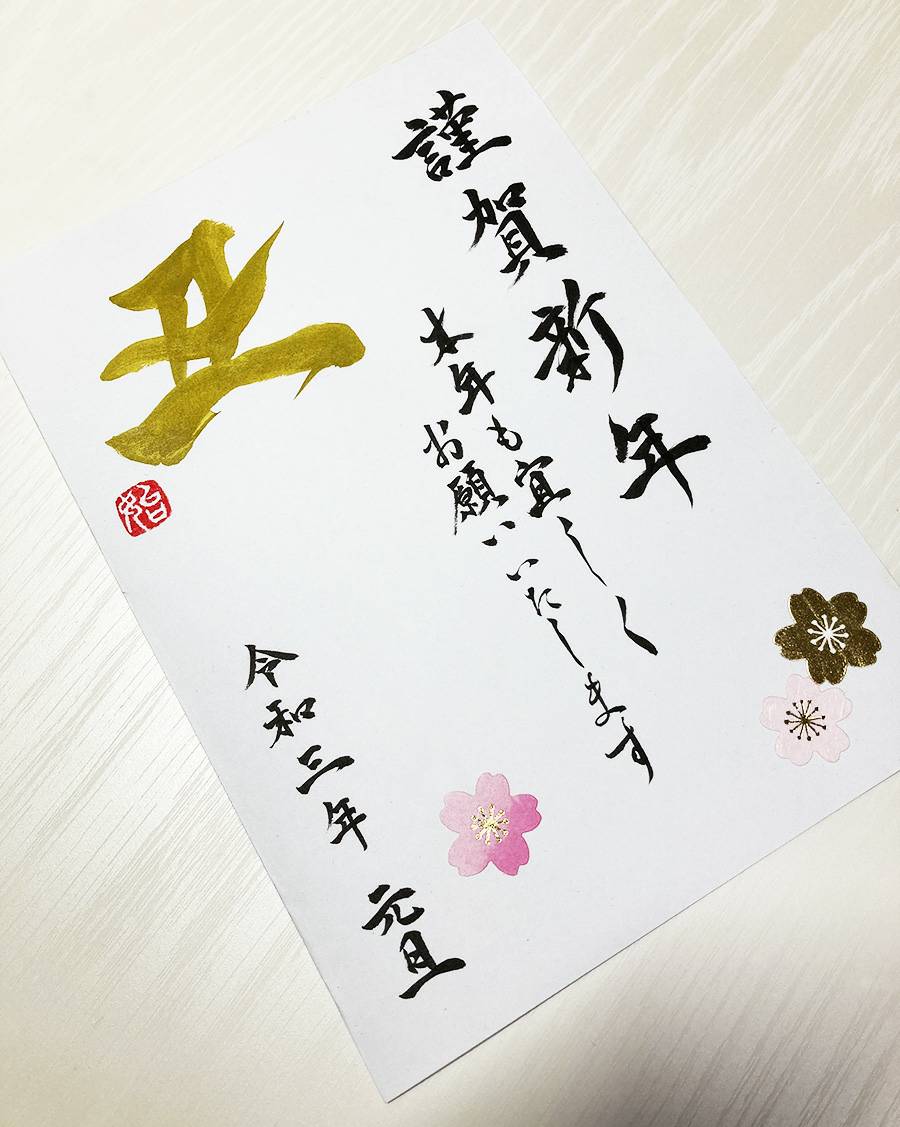 謹賀新年
本年も宜しく
お願いいたします
丑
令和三年 元旦